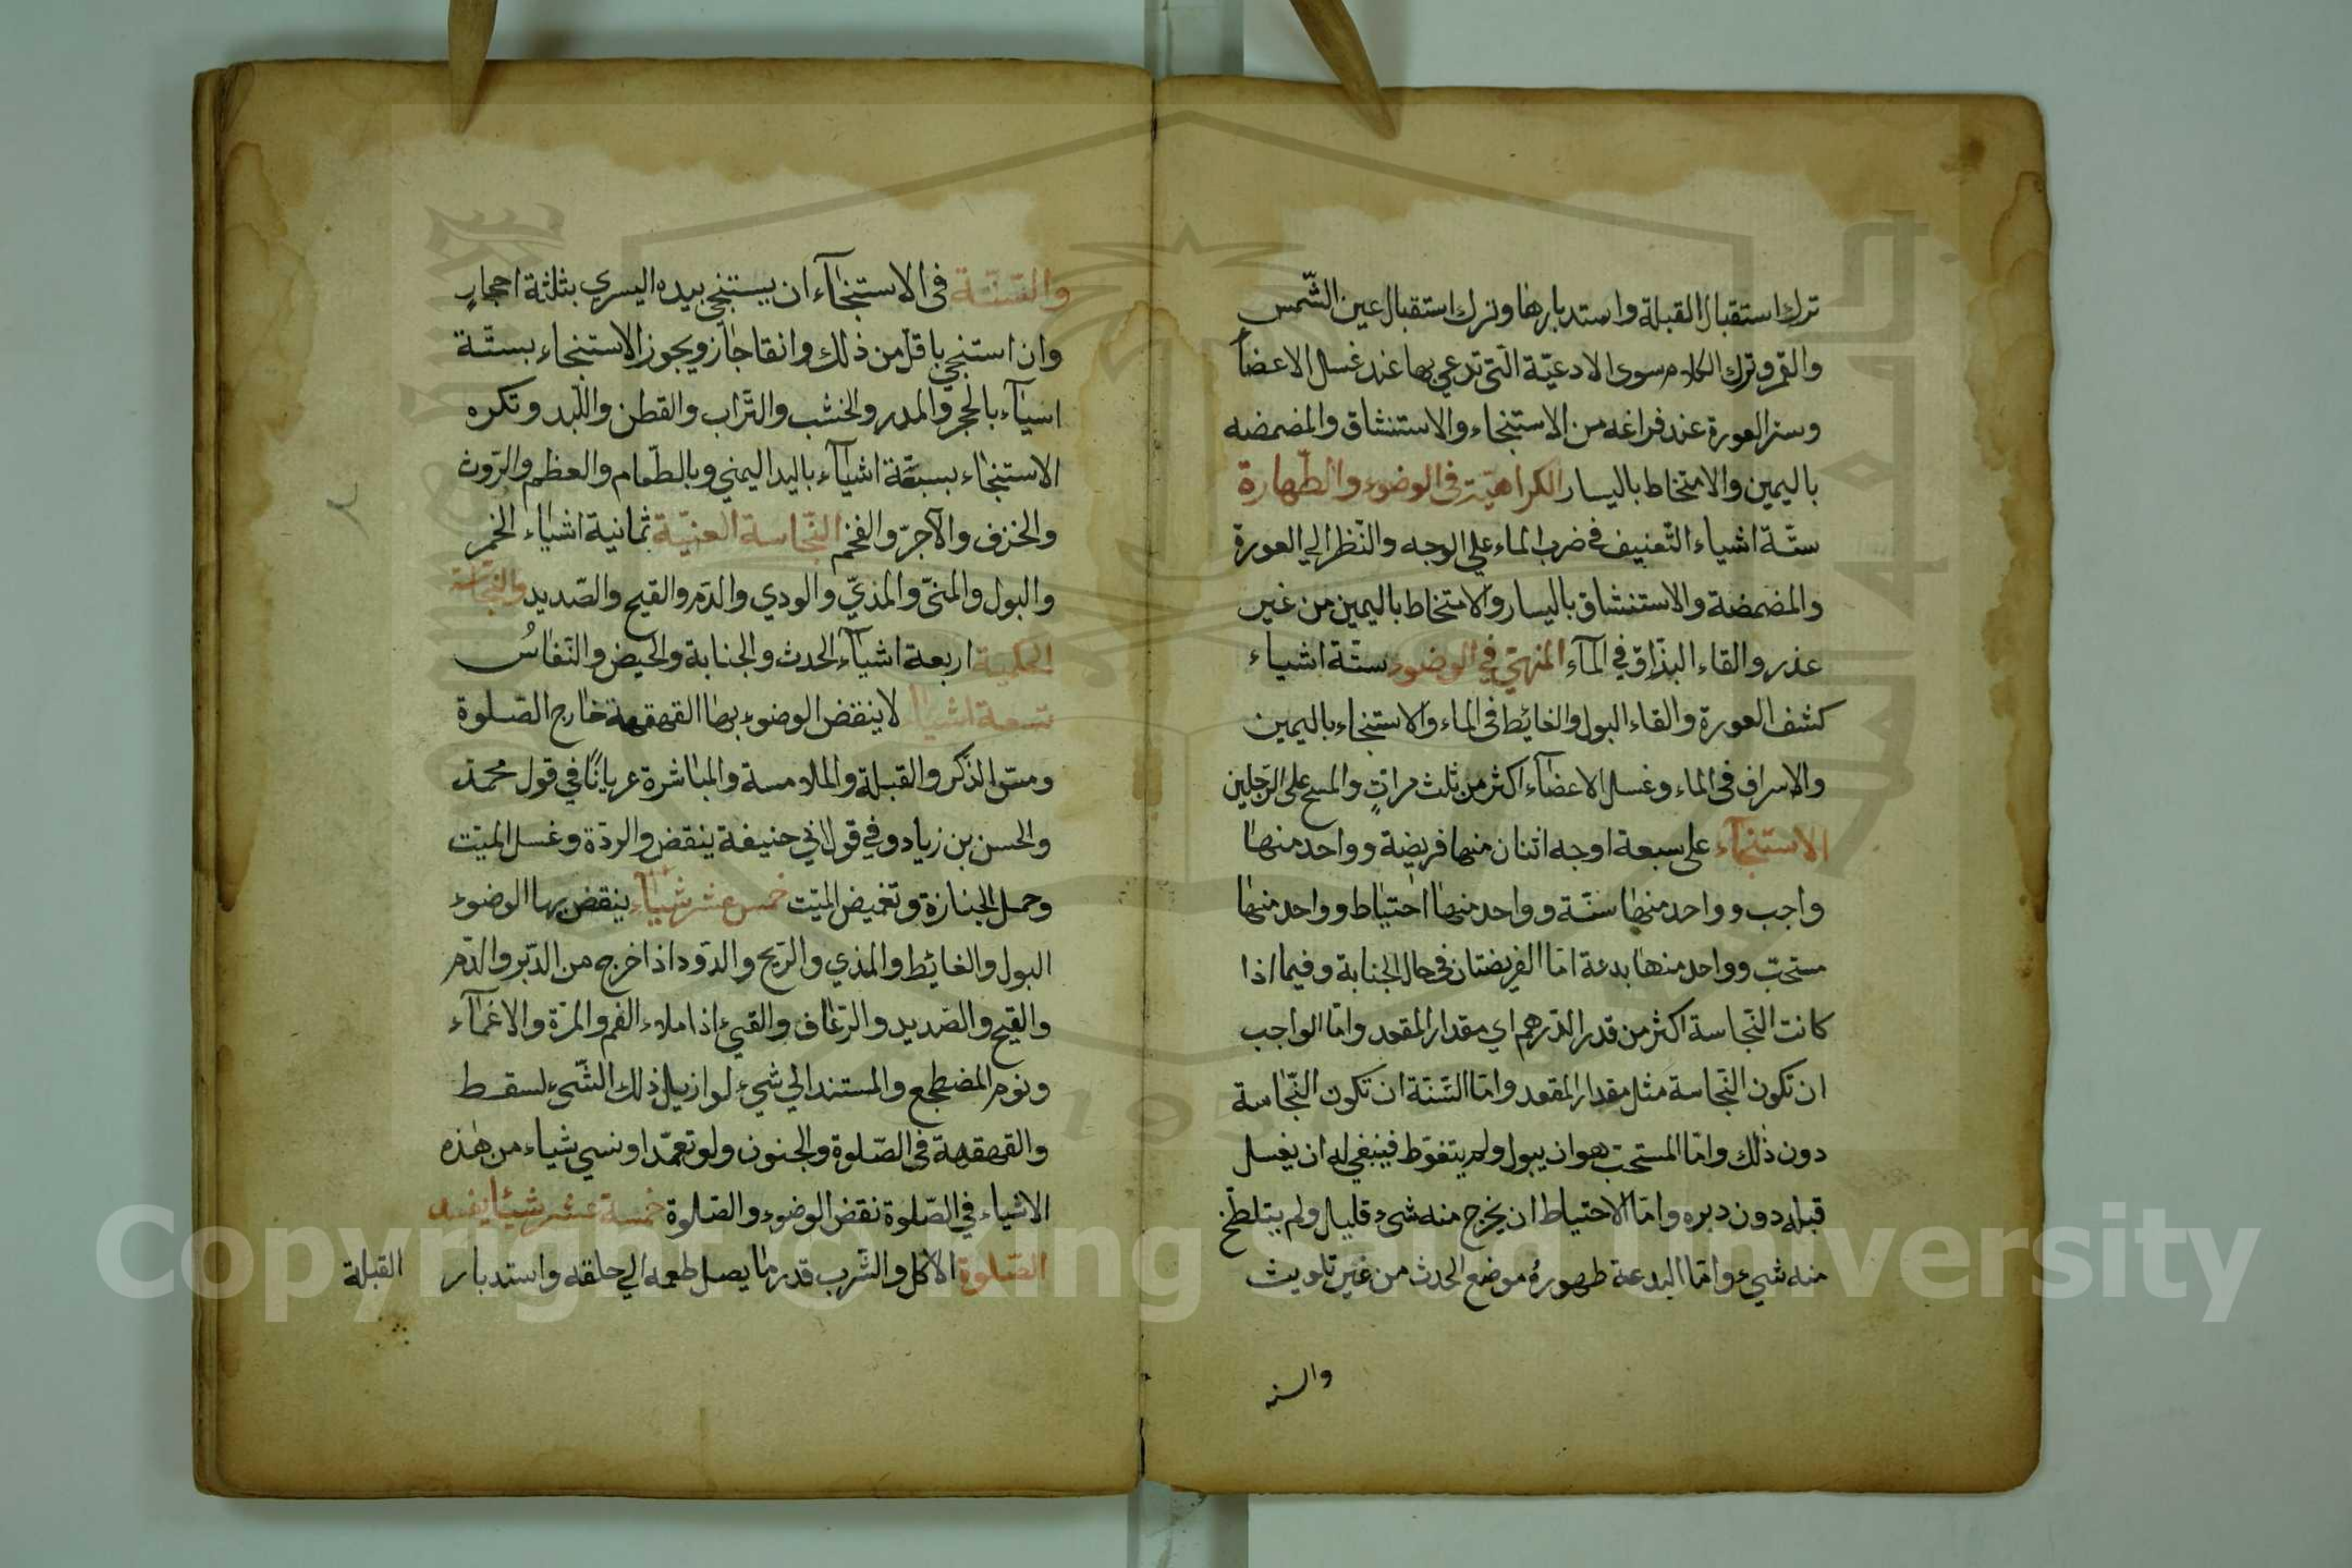 ترك استقبال القبلة واستدبارها وترك استقبال عين الشّمس
والقمر وترك الكلام سوى الادعيّة الّتى تدعي بها عند غسل الاعضاً
وستر العورة عند فراغه من الاستنجاء والاستنشاق والمضمضه
باليمين والامتخاط باليسار الكراهيّة فى الوضوء والطّهارة
ستّة اشياء التّعنيف فى ضرب الماء علي الوجه والنّظر الي العورة
والمضمضة والاستنشاق باليسار والامتخاط باليمين من غير
عذر والقاء البذّاق في المآء المنهيّ في الوضوء ستّة اشياء
كشف العورة والقاء البول والغائط فى الماء والاستنجاء باليمين
والاسراف فى الماء وغسل الاعضآء اكثر من ثلث مراتٍ والمسح على الرّجلين
الاستنجآء على سبعة اوجه اثنان منها فريضة وواحد منها
واجب وواحد منها سنّة وواحد منها احتياط وواحد منها
مستحبّ وواحد منها بدعة امّا الفريضتان فى حال الجنابة وفيما اذا
كانت النّجاسة اكثر من قدر الدّرهم اي مقدار المقعد وامّا الواجب
ان تكون النّجاسة مثل مقدار المقعد وامّا السّنّة ان تكون النّجاسة
دون ذلك وامّا المستحبّ هو ان يبول ولم يتغوّط فينبغي له ان يغسل
قبله دون دبره وامّا الاحتياط ان يخرج منه شىء قليل ولم يتلطّخ
منه شيء وامّا البدعة طهورُه موضع الحدث من غير تلويث
والسنه
والسّنّة فى الاستنجآء ان يستنجي بيده اليسري بثلثة احجارٍ
وان استنجي باقلّ من ذلك وانقا جاز ويجوز الاستنجاء بستّة
اشيآء بالحجر والمدر والخشب والتّراب والقطن واللّبد وتكره
الاستنجاء بسبعة اشيآء باليد اليمني وبالطّعام والعظم والرّوث
والخزف والآجرّ والفخم النّجاسة العنيّة ثمانية اشياء الخمر
والبول والمنىّ والمذيّ والودي والدّم والقيح والصّديد والنّجاسة
الحكمية اربعة اشيآء الحدث والجنابة والحيض والنّفاسُ
تسعة اشياء لا ينقض الوضوء بها القهقهة خارج الصّلوة
ومسّ الذّكر والقبلة والملامسة والمباشرة عريانًا في قول محمّد
والحسن بن زياد وفي قول ابي حنيفة ينقض والردّة وغسل الميّت
وحمل الجنازة وتغميض الميّت خمس عشر شياء ينقض بها الوضوء
البول والغائط والمذي والرّيح والدّود اذا خرج من الدّبر والدّم
والقيح والصّديد والرّعاف والقيء اذا ملاء الفم والمرّة والاغمآء
ونوم المضطجع والمستند الي شيء لو ازيل ذلك الشّيء لسقط
والقهقهة فى الصّلوة والجنون ولو تعمّد او نسي شياء من هذه
الاشياء في الصّلوة نقض الوضوء والصّلوة خمسة عشر شيئا يفسد
الصّلوة الاكل والشّرب قدر ما يصل طعمه الي حلقه واستدبار
القبلة
Copyright © King Saud University